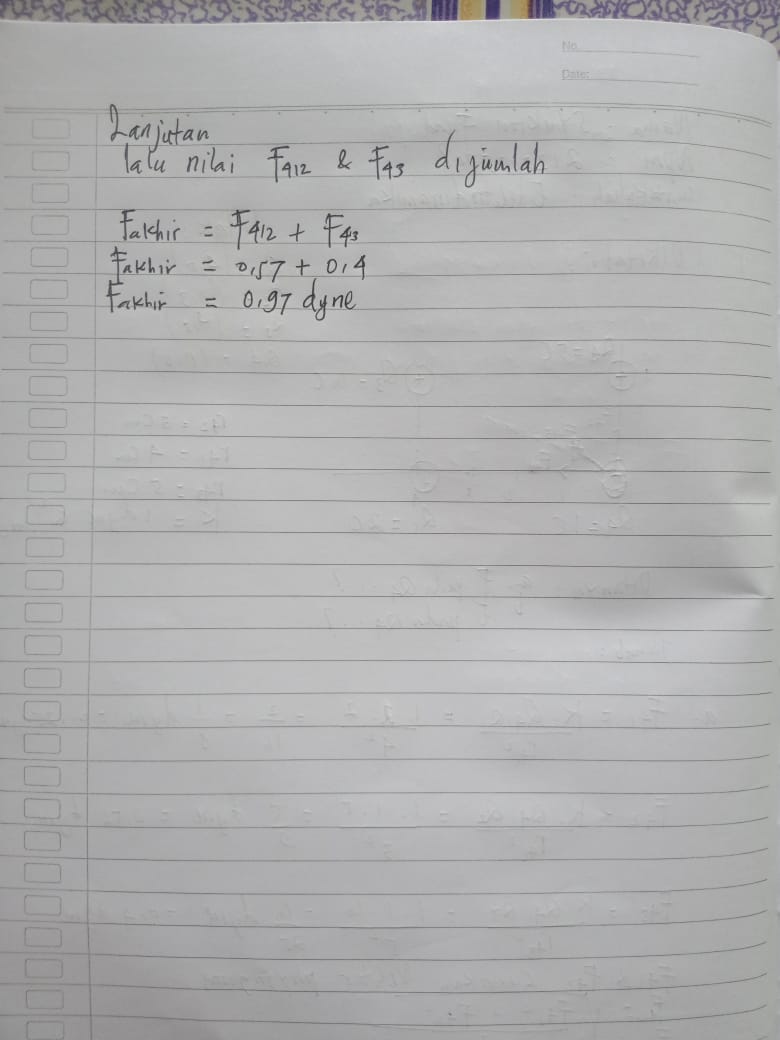 No.
Date:
Lanjutan
lalu nilai F412 & F43 dijumlah
Fakhir = F412 + F43
Fakhir = 0,57 + 0,4
Fakhir = 0,97 dyne